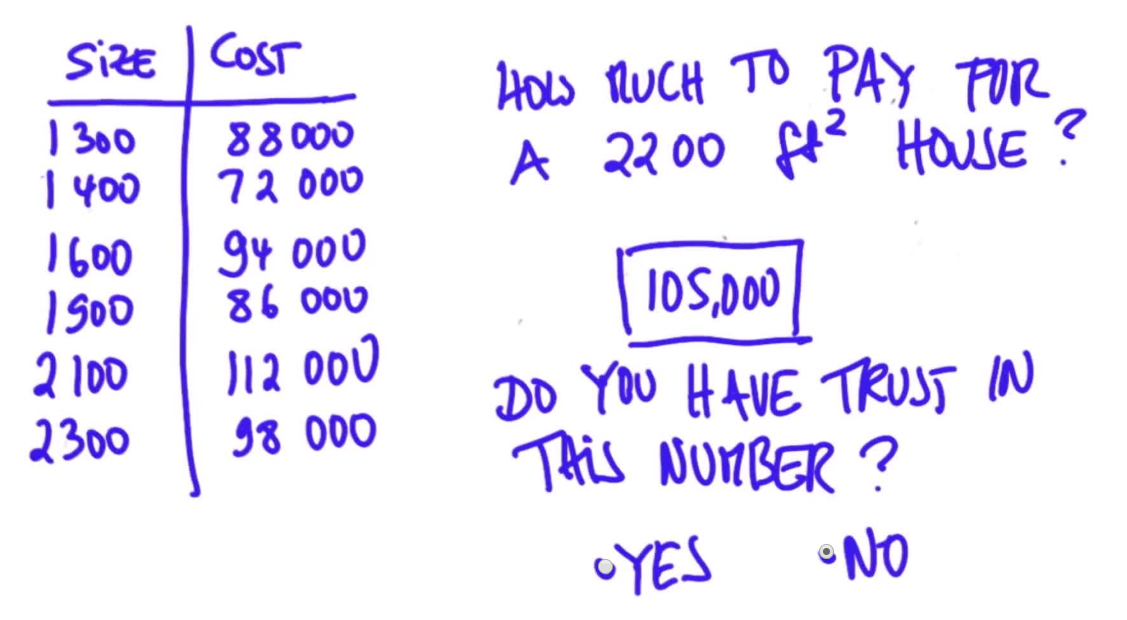 SIZE COST
1300 88000
1400 72 000
1600 94 000
1900 86 000
2100 112 000
2300 98 000
HOW MUCH TO PAY FOR
A 2200 ft² HOUSE?
105,000
DO YOU HAVE TRUST IN
THIS NUMBER?
YES NO